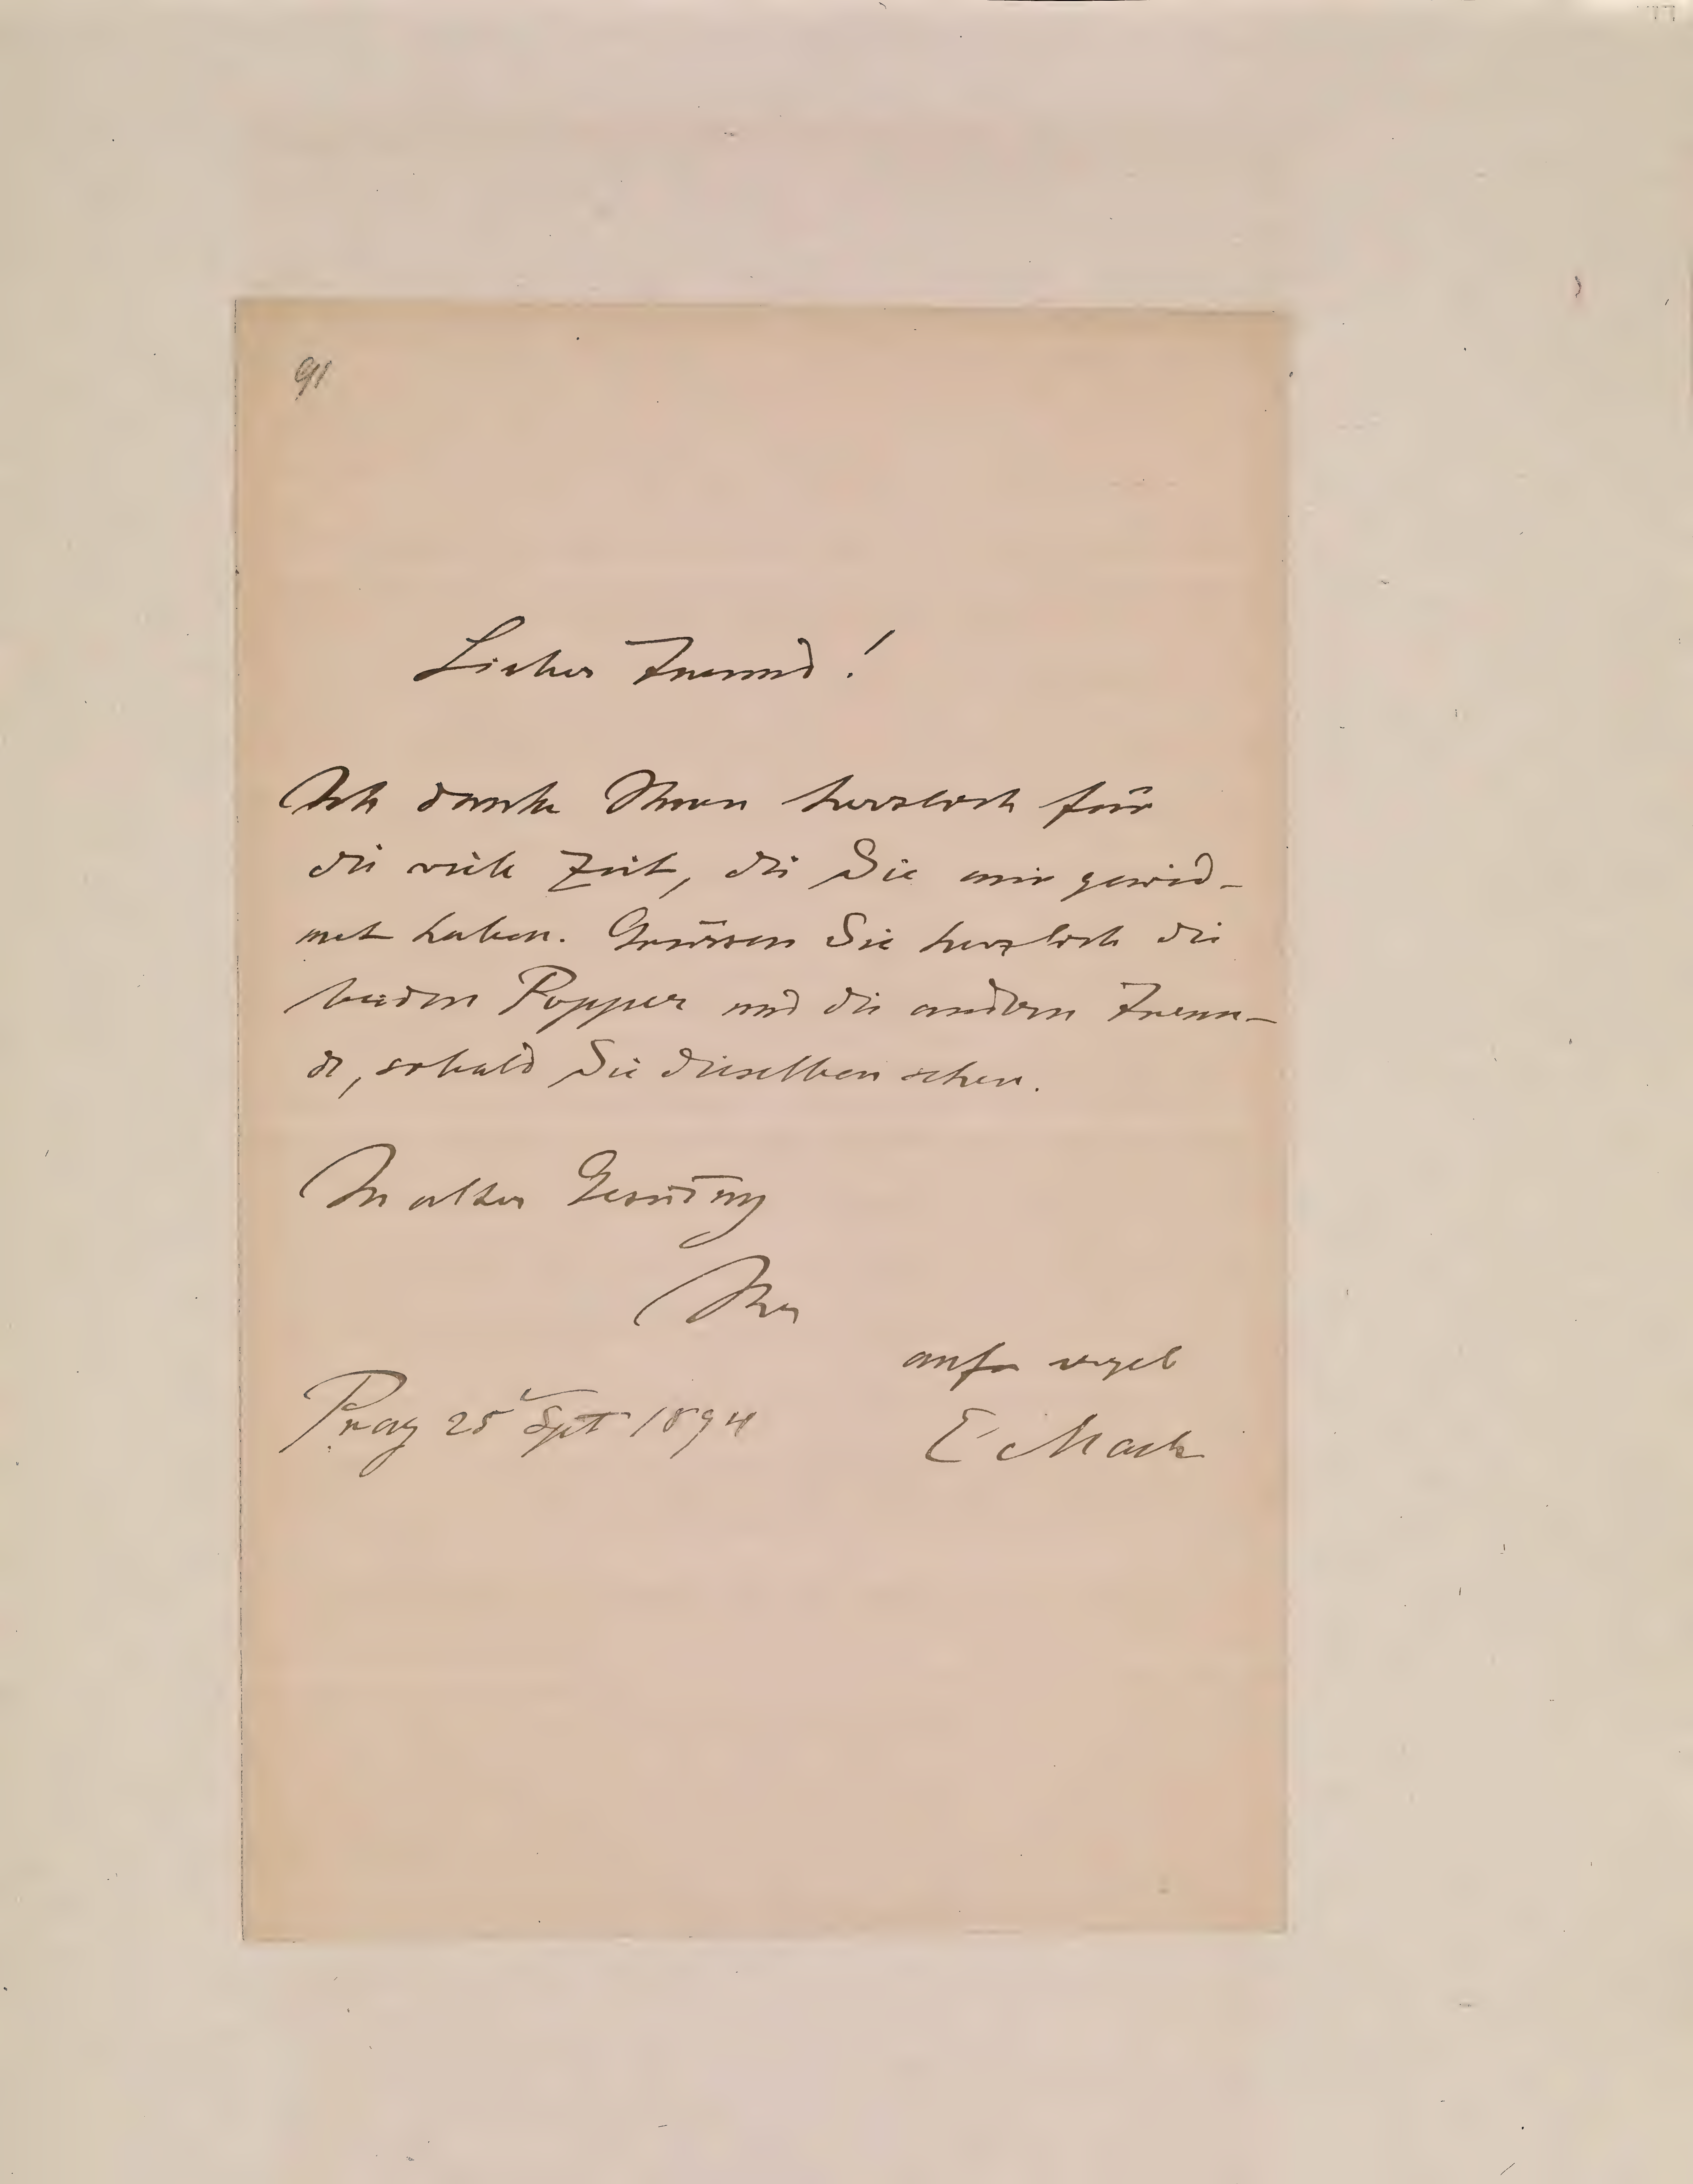 91
Lieber Freund!
Ich danke Ihnen herzlich für
die viele Zeit, die Sie mir gewid-
met haben. Grüssen Sie herzlich die
beiden Popper und die andern Freun-
de, sobald Sie dieselben sehen.
In alter Gesinnung
Ihr
Prag 25 Sept 1894
E Mach